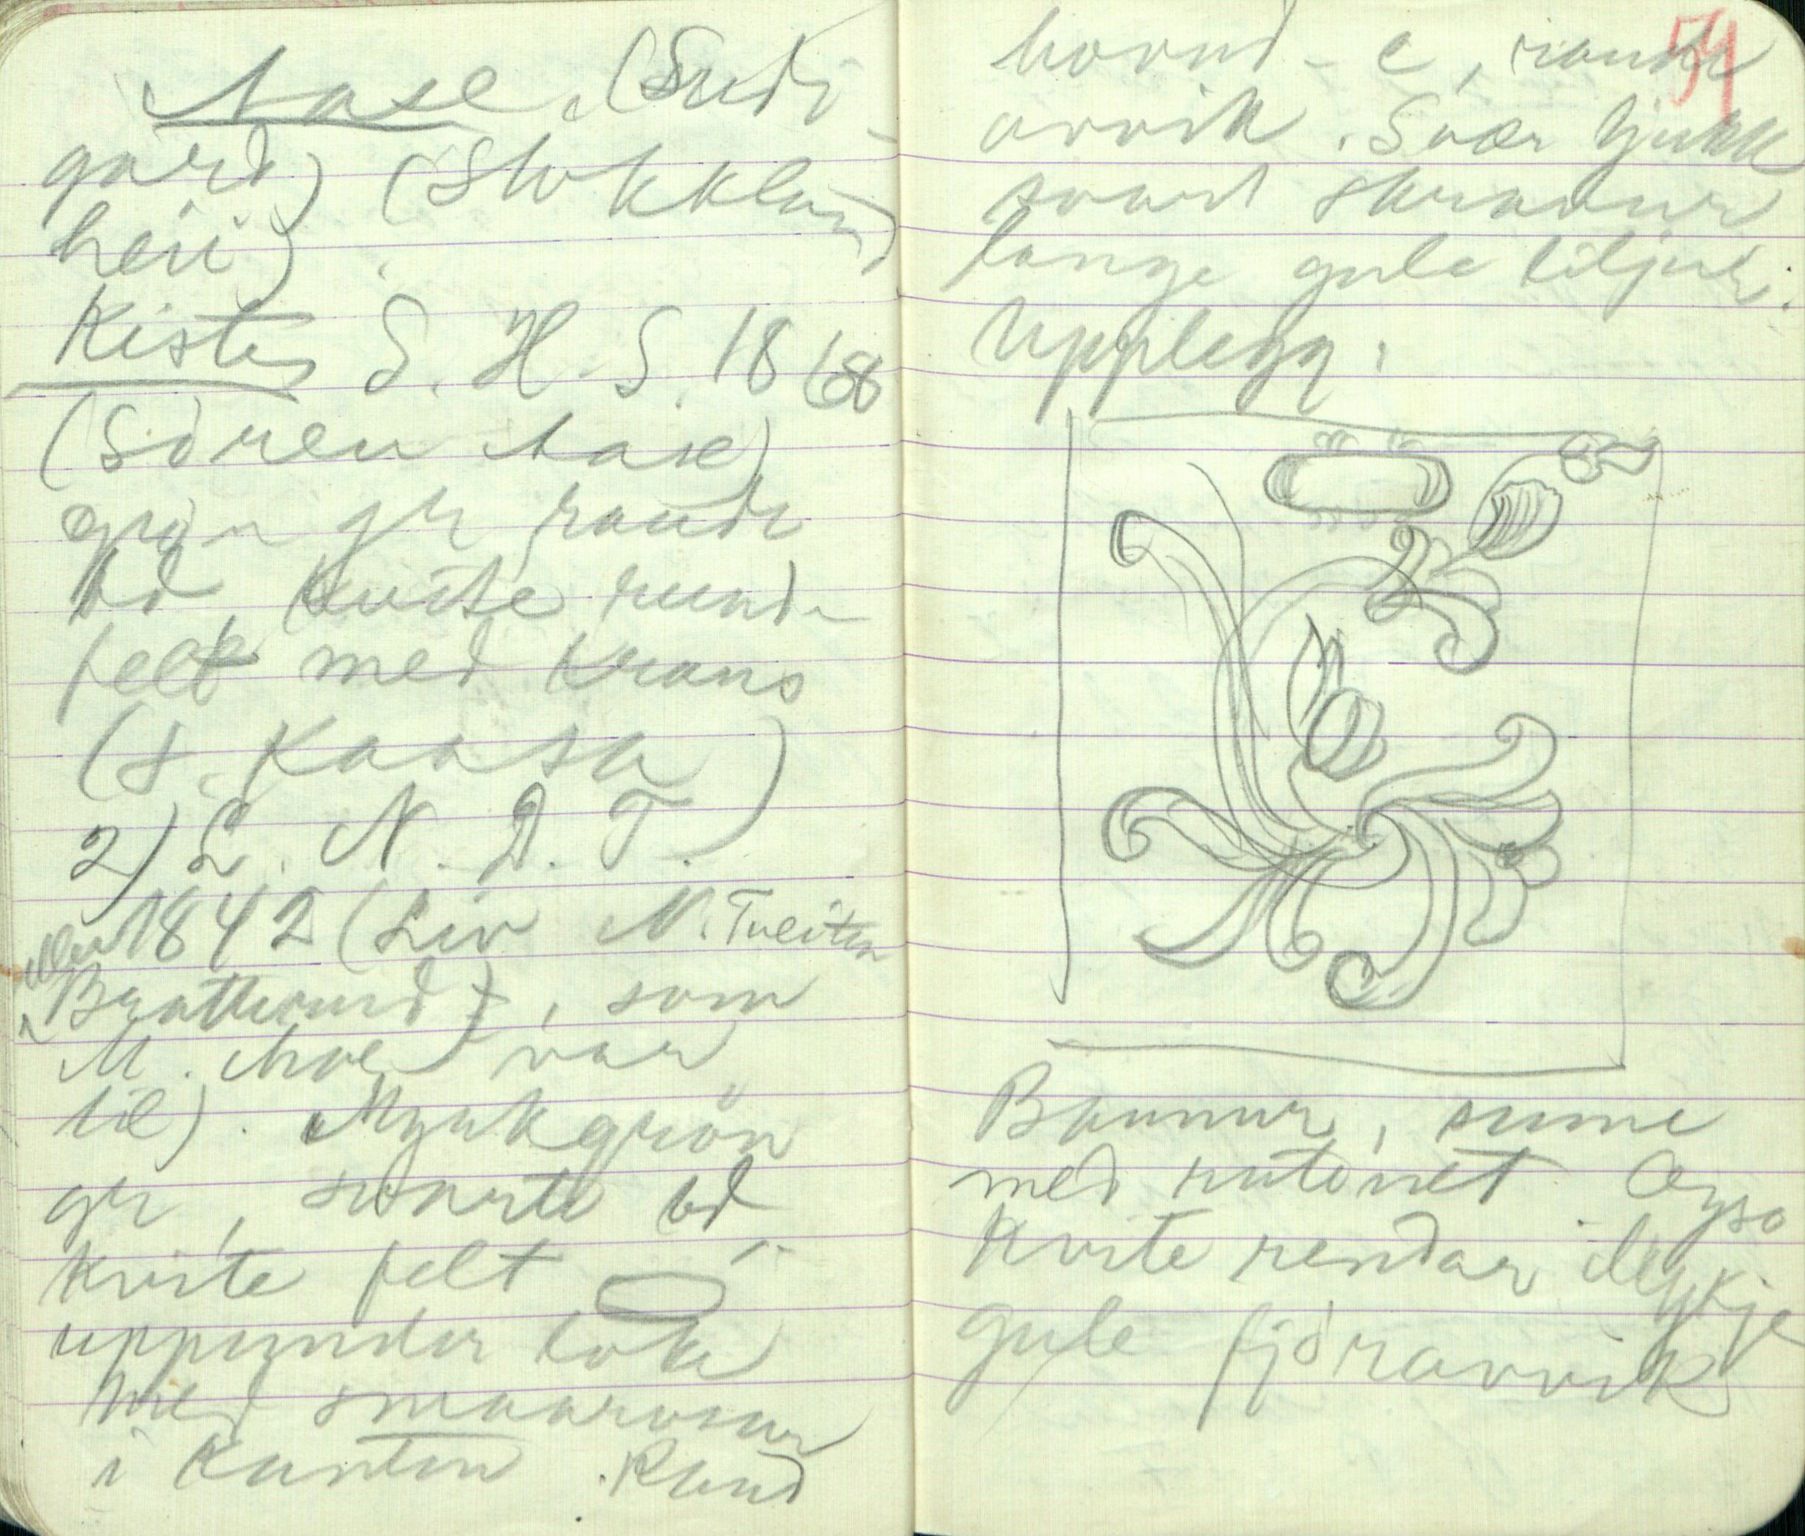 Aase. (Sudi
gard) (Stokkland
heii).
Kiste S. H. S. 1868
(Sören Aase)
grön gr raude
bd kvite rund-
felt med krans
(s. Kaasa)
2) L. N. D. T.
1842 (Liv N. Tveiten
, som
M. Moe var
til). Mynkgrön
gr, svarte bd,
kvite felt
uppunder lok
med smaarosur
i kanten. Raud
54
bovnd - e, raude
orvik. Svær tjukk
svart skravur
lange gule liljur.
Upplegg:
Bommur, sume
med rutenet Ogso
kvite rendar
gule fjöravvik